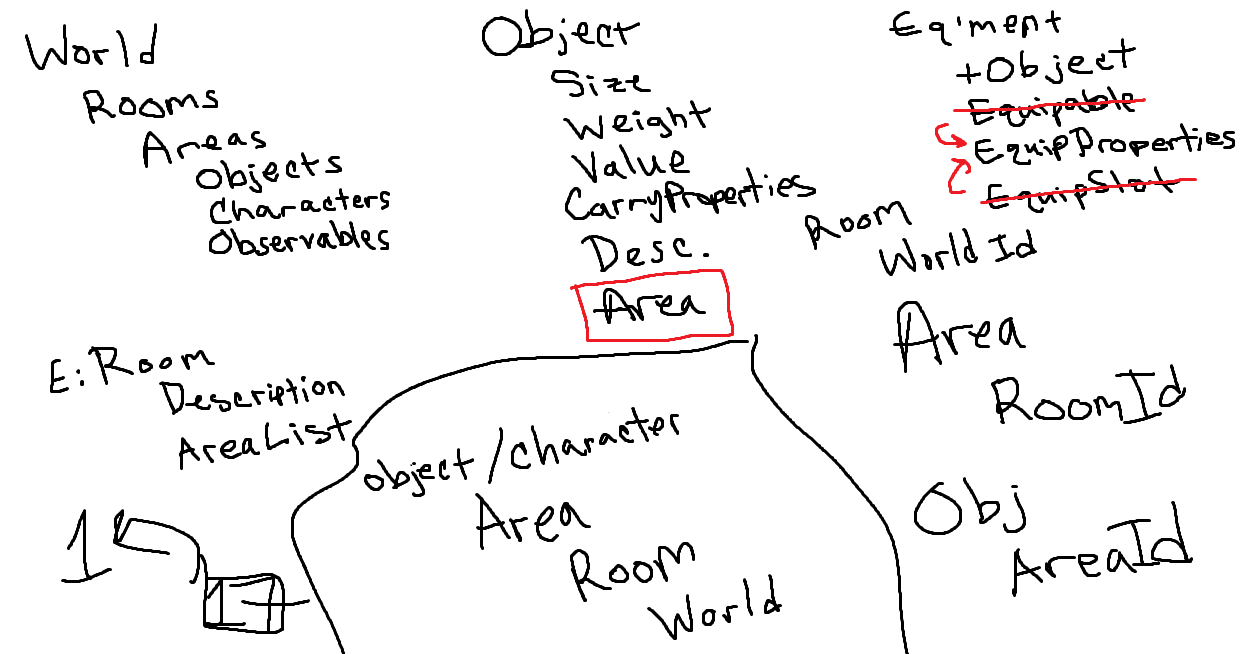 World
Rooms
Areas
Objects
Characters
Observables
Object
Size
Weight
Value
CarryProperties
Desc.
Area
Eq'ment
+Object
Equipable
EquipProperties
EquipSlot
Room
World Id
Area
RoomId
Obj
AreaId
E: Room
Description
AreaList
object/character
Area
Room
World
1